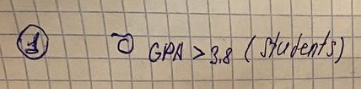 ① σ GPA > 3.8 (students)